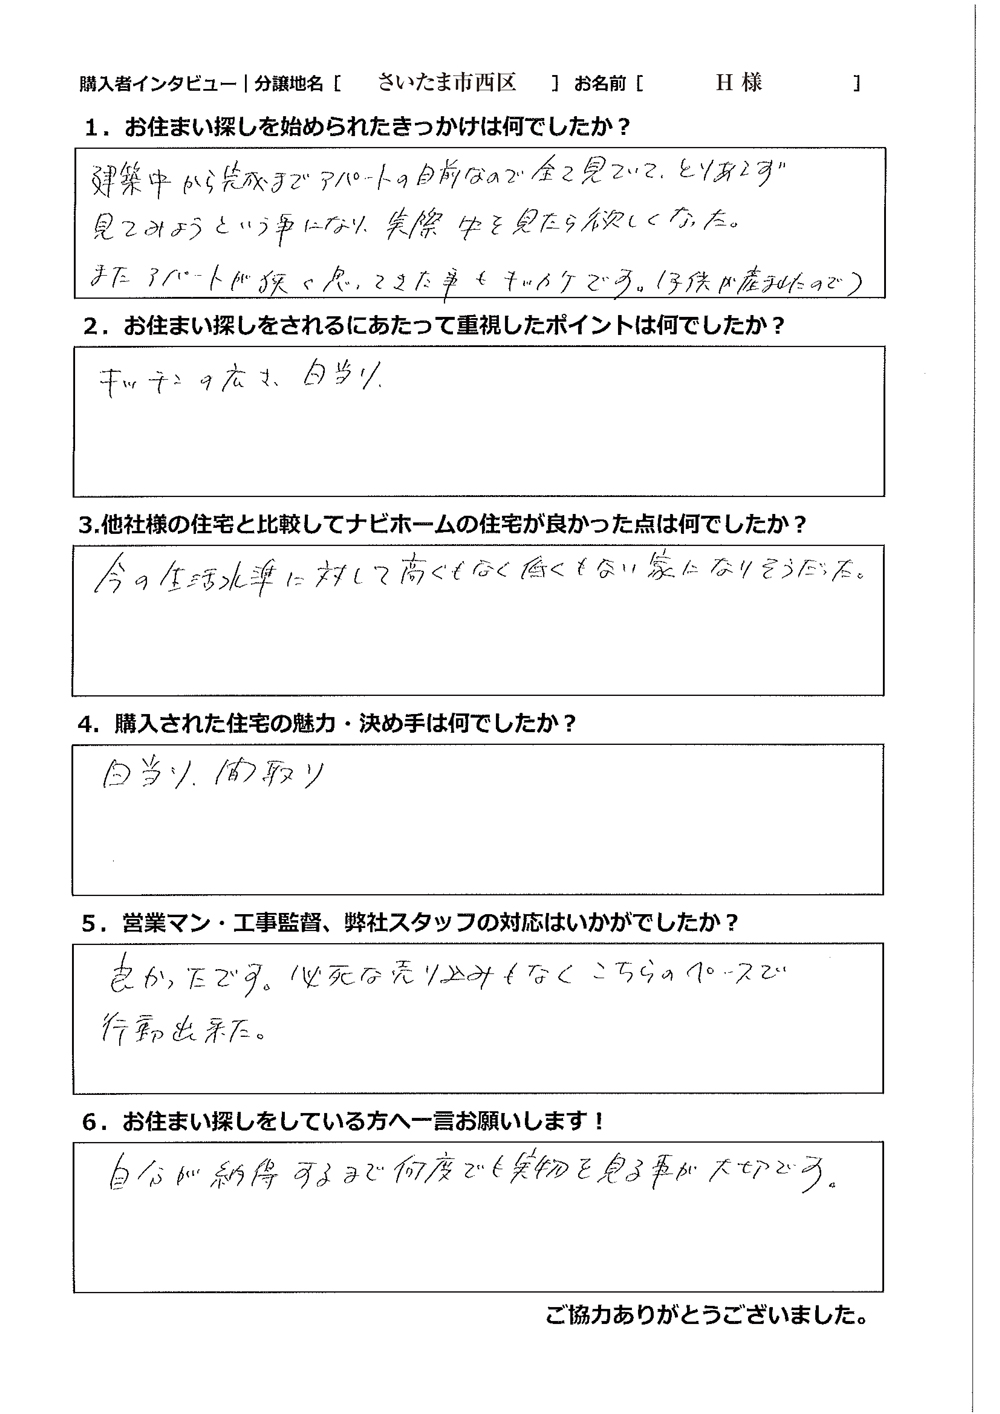 購入者インタビュー｜分譲地名 [ さいたま市西区 ] お名前 [ H 様 ]
1．お住まい探しを始められたきっかけは何でしたか？
建築中から完成までアパートの目前なので全て見ていて、とりあえず
見てみようという事になり、実際中を見たら欲しくなった。
またアパートが狭く思ってきた事もキッカケです。(子供が産まれたので)
2．お住まい探しをされるにあたって重視したポイントは何でしたか？
キッチンの広さ、日当り、
3.他社様の住宅と比較してナビホームの住宅が良かった点は何でしたか？
今の生活水準に対して高くもなく低くもない家になりそうだった。
4．購入された住宅の魅力・決め手は何でしたか？
日当り、間取り
5．営業マン・工事監督、弊社スタッフの対応はいかがでしたか？
良かったです。必死な売り込みもなくこちらのペースで
行動出来た。
6．お住まい探しをしている方へ一言お願いします！
自分が納得するまで何度でも実物を見る事が大切です。
ご協力ありがとうございました。